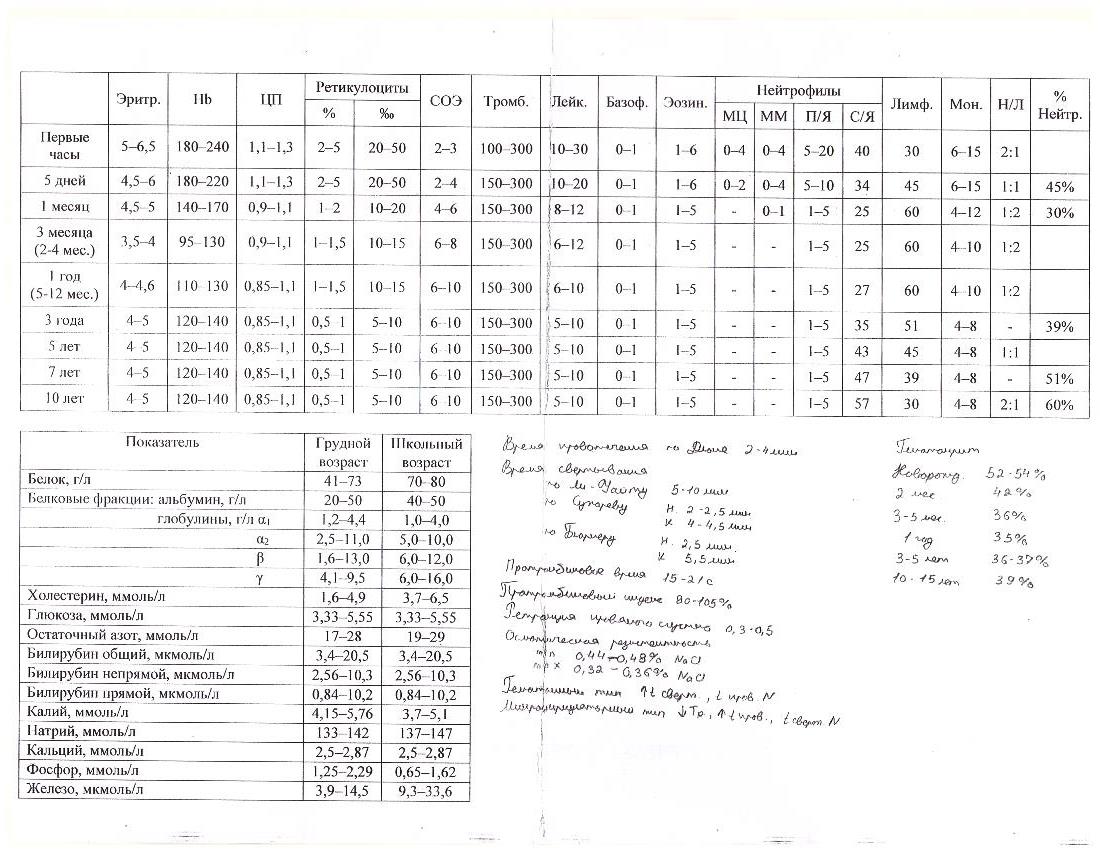 Эритр. Hb ЦП Ретикулоциты СОЭ Тромб. Лейк. Базоф. Эозин. Нейтрофилы Лимф. Мон. Н/Л % Нейтр.
% ‰ МЦ ММ П/Я С/Я
Первые часы 5–6,5 180–240 1,1–1,3 2–5 20–50 2–3 100–300 10–30 0–1 1–6 0–4 0–4 5–20 40 30 6–15 2:1
5 дней 4,5–6 180–220 1,1–1,3 2–5 20–50 2–4 150–300 10–20 0–1 1–6 0–2 0–4 5–10 34 45 6–15 1:1 45%
1 месяц 4,5–5 140–170 0,9–1,1 1–2 10–20 4–6 150–300 8–12 0–1 1–5 - 0–1 1–5 25 60 4–12 1:2 30%
3 месяца (2-4 мес.) 3,5–4 95–130 0,9–1,1 1–1,5 10–15 6–8 150–300 6–12 0–1 1–5 - - 1–5 25 60 4–10 1:2
1 год (5-12 мес.) 4–4,6 110–130 0,85–1,1 1–1,5 10–15 6–10 150–300 6–10 0–1 1–5 - - 1–5 27 60 4–10 1:2
3 года 4–5 120–140 0,85–1,1 0,5–1 5–10 6–10 150–300 5–10 0–1 1–5 - - 1–5 35 51 4–8 - 39%
5 лет 4–5 120–140 0,85–1,1 0,5–1 5–10 6–10 150–300 5–10 0–1 1–5 - - 1–5 43 45 4–8 1:1
7 лет 4–5 120–140 0,85–1,1 0,5–1 5–10 6–10 150–300 5–10 0–1 1–5 - - 1–5 47 39 4–8 - 51%
10 лет 4–5 120–140 0,85–1,1 0,5–1 5–10 6–10 150–300 5–10 0–1 1–5 - - 1–5 57 30 4–8 2:1 60%
Показатель Грудной возраст Школьный возраст
Белок, г/л 41–73 70–80
Белковые фракции: альбумин, г/л 20–50 40–50
глобулины, г/л α1 1,2–4,4 1,0–4,0
α2 2,5–11,0 5,0–10,0
β 1,6–13,0 6,0–12,0
γ 4,1–9,5 6,0–16,0
Холестерин, ммоль/л 1,6–4,9 3,7–6,5
Глюкоза, ммоль/л 3,33–5,55 3,33–5,55
Остаточный азот, ммоль/л 17–28 19–29
Билирубин общий, мкмоль/л 3,4–20,5 3,4–20,5
Билирубин непрямой, мкмоль/л 2,56–10,3 2,56–10,3
Билирубин прямой, мкмоль/л 0,84–10,2 0,84–10,2
Калий, ммоль/л 4,15–5,76 3,7–5,1
Натрий, ммоль/л 133–142 137–147
Кальций, ммоль/л 2,5–2,87 2,5–2,87
Фосфор, ммоль/л 1,25–2,29 0,65–1,62
Железо, мкмоль/л 3,9–14,5 9,3–33,6
Время кровотечения по Дюке 2-4 мин
Время свертывания
по Ли-Уайту 5-10 мин
по Сухареву н. 2-2,5 мин
к 4-4,5 мин
по Бюркеру н. 2,5 мин.
к 5,5 мин
Протромбиновое время 15-21 с
Протромбиновый индекс 80-105%
Ретракция кровяного сгустка 0,3-0,5
Осмотическая резистентность
min 0,44-0,48% NaCl
max 0,32-0,36% NaCl
Гематомный тип ↑t сверт., t кров. N
Микроциркуляторный тип ↓Тр., ↑t кров., t сверт. N
Гематокрит
Новорожд. 52-54%
2 мес 42%
3-5 мес. 36%
1 год 35%
3-5 лет 36-37%
10-15 лет 39%